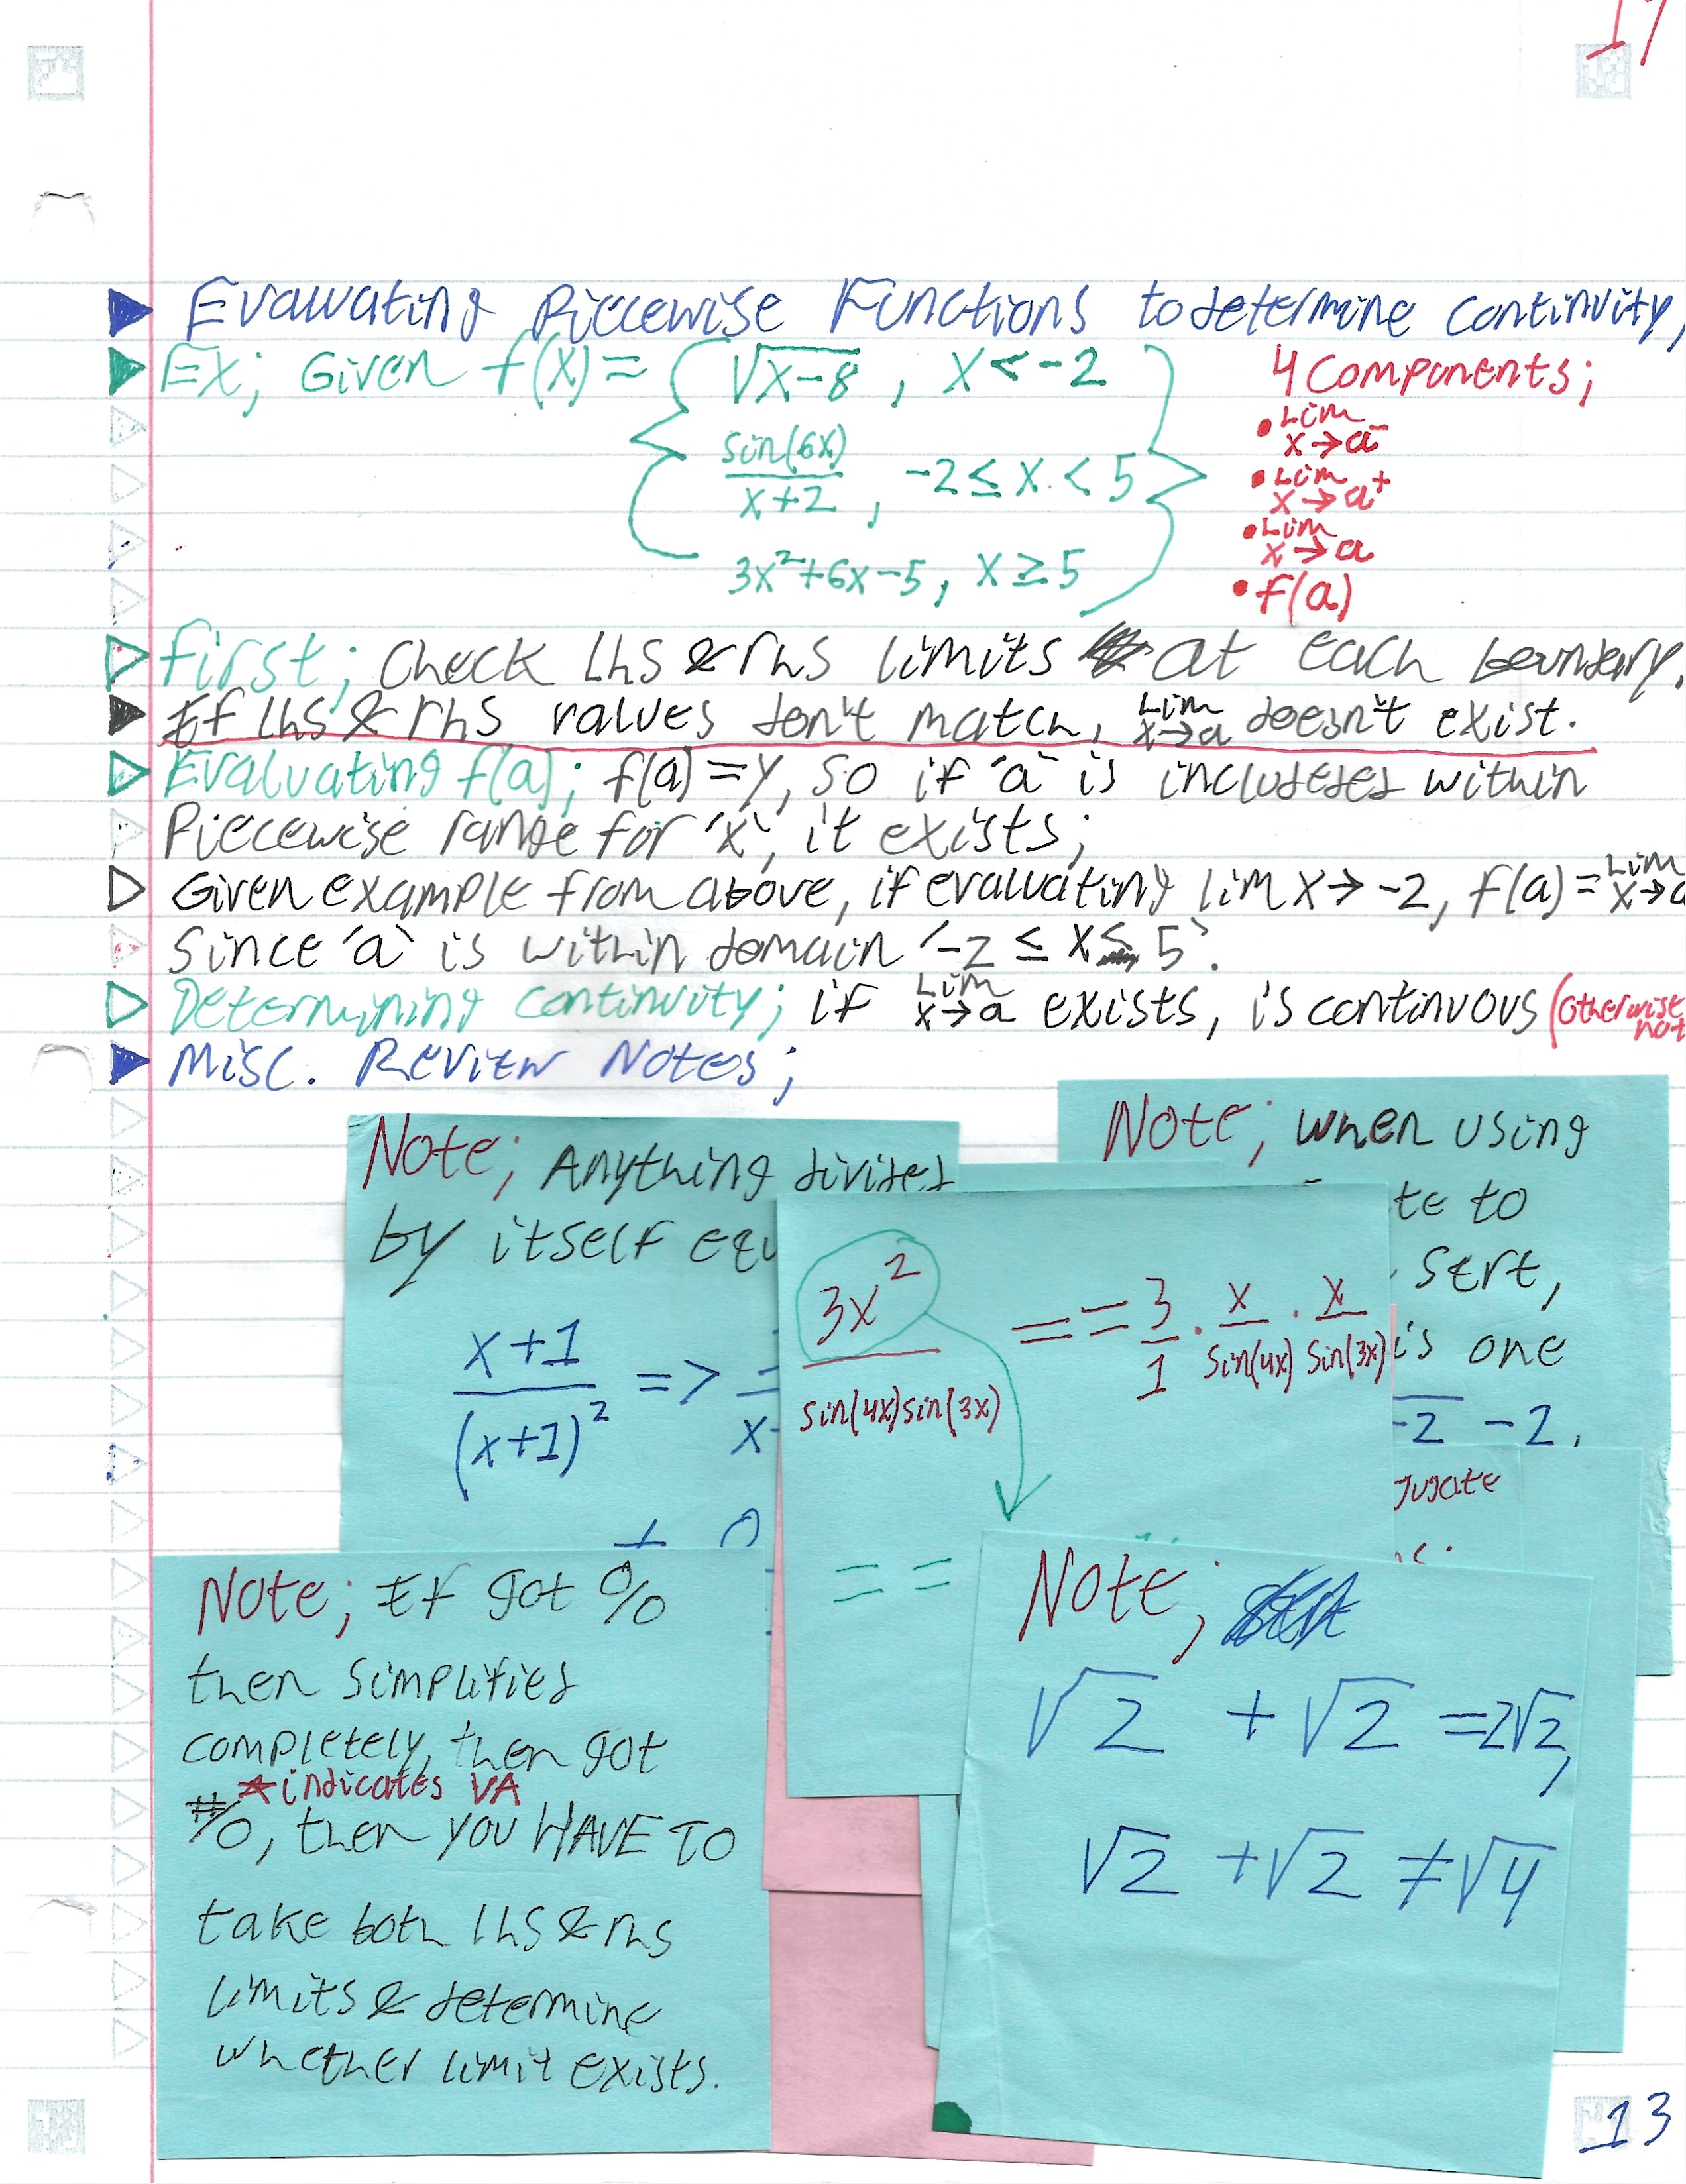 17
Evaluating Piecewise Functions to determine continuity;
Ex; Given f(x) = { √x-8 , x < -2
sin(6x)/x+2 , -2 ≤ x < 5
3x²+6x-5, x ≥ 5 }
4 Components;
• Lim x→a⁻
• Lim x→a⁺
• Lim x→a
• f(a)
First; Check lhs & rhs limits at each boundary.
If lhs & rhs values don't match, Lim x→a doesn't exist.
Evaluating f(a); f(a)=y, so if 'a' is includeded within
Piecewise range for 'x', it exists;
Given example from above, if evaluating lim x→ -2, f(a) = Lim x→a
Since 'a' is within domain '-2 ≤ x ≤ 5'.
Determining continuity; if Lim x→a exists, is continuous (otherwise not
Misc. Review Notes;
Note; Anything divided
by itself equ
x+1/(x+1)² =>
x-
Note; when using
te to
sert,
is one
-2 -2,
jugate
3x²/sin(4x)sin(3x) = = 3/1 · x/sin(4x) · x/sin(3x)
= =
Note; If got 0/0
then simplified
completely, then got
*indicates VA
#/0, then you HAVE TO
take both lhs & rhs
limits & determine
whether limit exists.
Note;
√2 + √2 = 2√2,
√2 + √2 ≠ √4
13